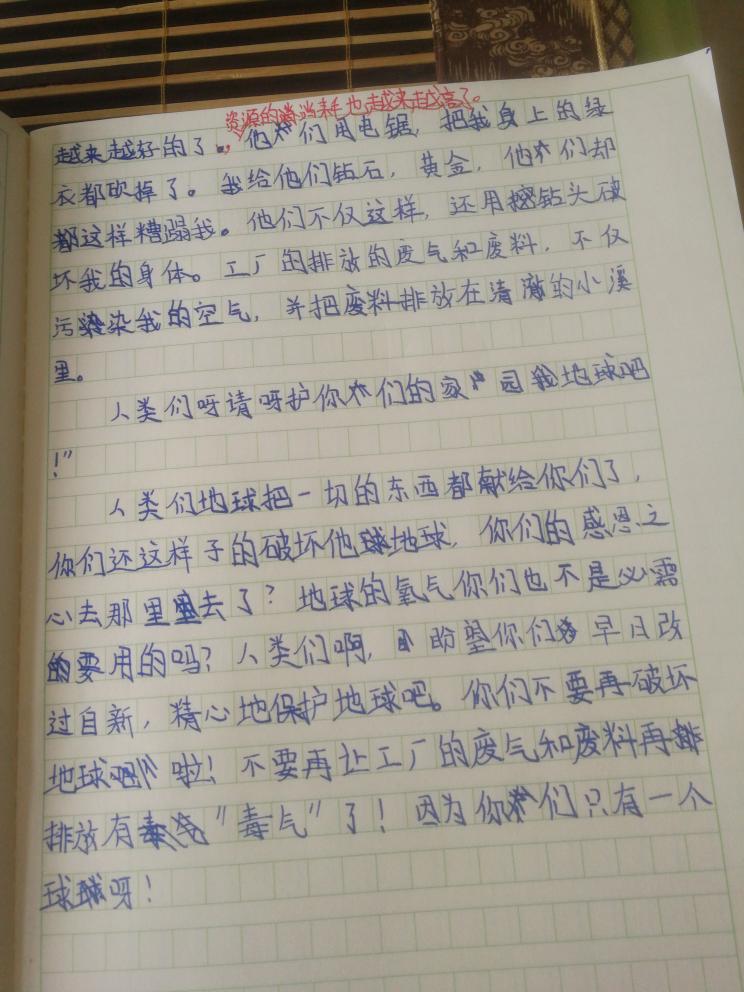 资源的消耗也越来越高了。
越来越好的了。他们用电锯，把我身上的绿
衣都砍掉了。我给他们钻石，黄金，他们却
这样糟蹋我。他们不仅这样，还用钻头破
坏我的身体。工厂的排放的废气和废料，不仅
污染我的空气，并把废料排放在清澈的小溪
里。
人类们呀请呀护你们的家园地球吧
！”
人类们地球把一切的东西都献给你们了，
你们还这样子的破坏地球，你们的感恩之
心去那里去了？地球的氧气你们也不是必需
要用的吗？人类们啊，盼望你们早日改
过自新，精心地保护地球吧。你们不要再破坏
地球啦！不要再让工厂的废气和废料再
排放有“毒气”了！因为你们只有一个
球呀！